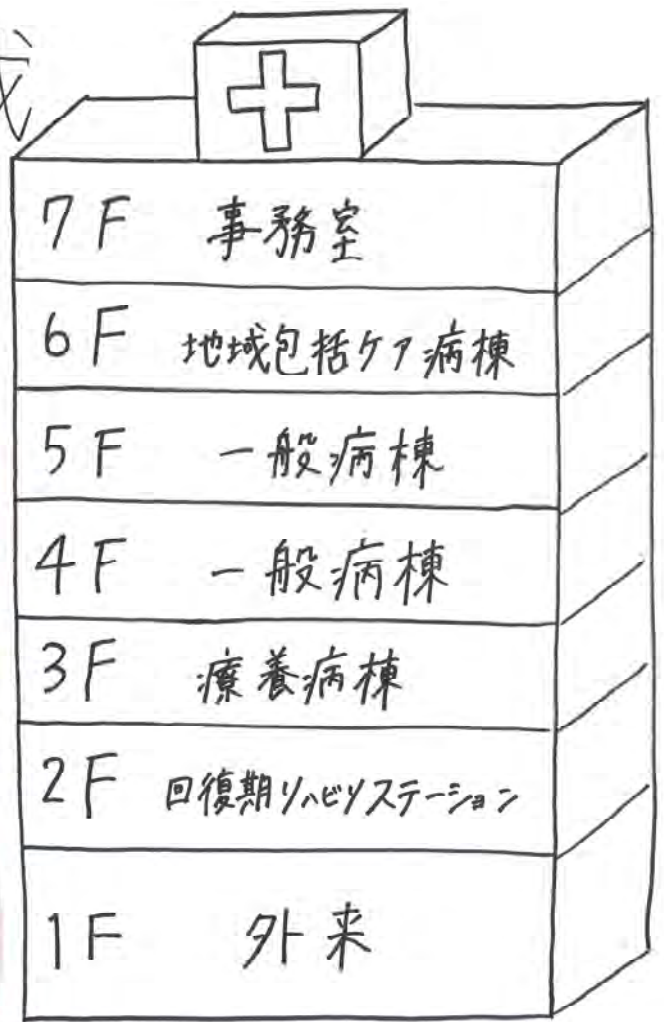 7F 事務室
6F 地域包括ケア病棟
5F 一般病棟
4F 一般病棟
3F 療養病棟
2F 回復期リハビリステーション
1F 外来